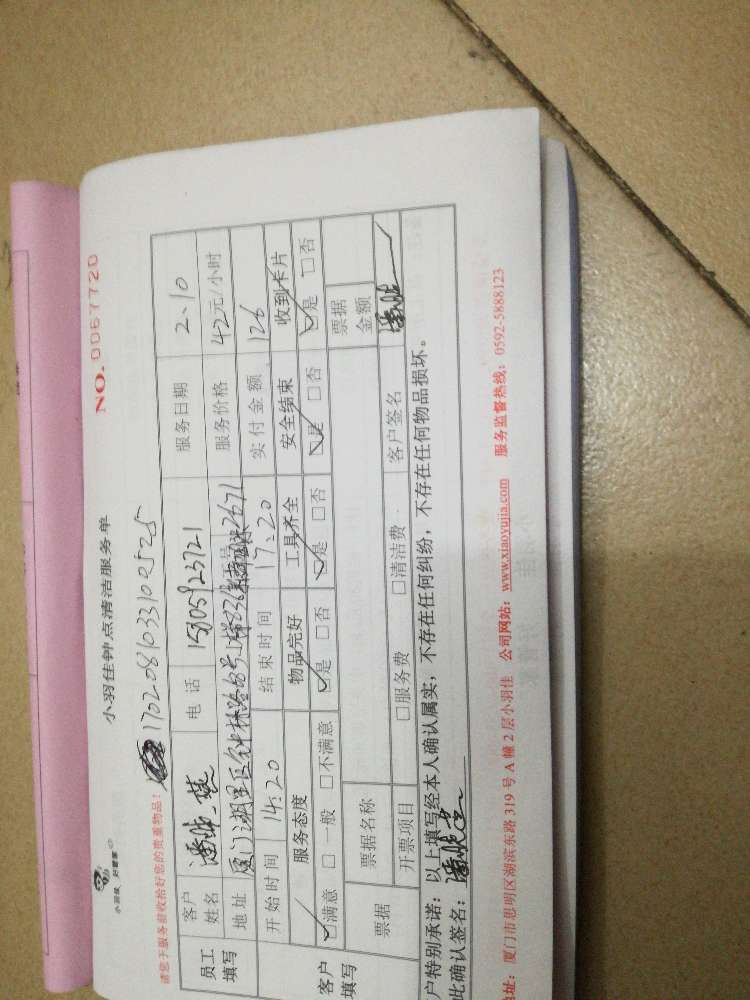 小羽佳钟点清洁服务单
小羽佳，好管家
NO. 0067720
请您于服务前收拾好您的贵重物品！
1702081033102525
员工填写
客户姓名
电话 15805923721
服务日期 2、10
地址
服务价格 42元/小时
开始时间 14:20
结束时间 17:20
实付金额 126
客户填写
服务态度 物品完好 工具齐全 安全结束 收到卡片
☑满意 □一般 □不满意 ☑是 □否 ☑是 □否 ☑是 □否 ☑是 □否
票据 票据名称 票据金额
开票项目 □服务费 □清洁费 客户签名
户特别承诺：以上填写经本人确认属实，不存在任何纠纷，不存在任何物品损坏。
此确认签名：
地址：厦门市思明区湖滨东路 319 号 A 幢 2 层小羽佳 公司网站：www.xiaoyujia.com 服务监督热线：0592-5888123